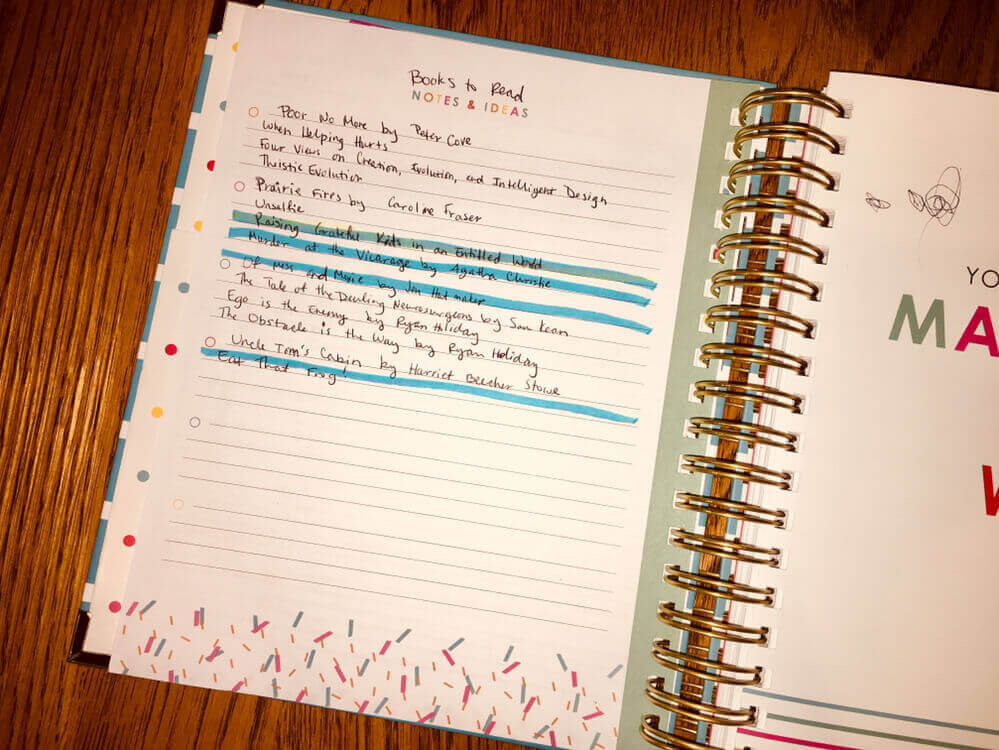 Books to Read
NOTES & IDEAS
Poor No More by Peter Cove
When Helping Hurts
Four Views on Creation, Evolution, and Intelligent Design
Thistic Evolution
Prairie Fires by Caroline Fraser
Unselfie
Raising Grateful Kids in an Entitled World
Murder at the Vicarage by Agatha Christie
Of Mess and Moxie by Jen Hatmaker
The Tale of the Dueling Neurosurgeons by Sam Kean
Ego is the Enemy by Ryan Holiday
The Obstacle is the Way by Ryan Holiday
Uncle Tom's Cabin by Harriet Beecher Stowe
Eat That Frog
YO
MA